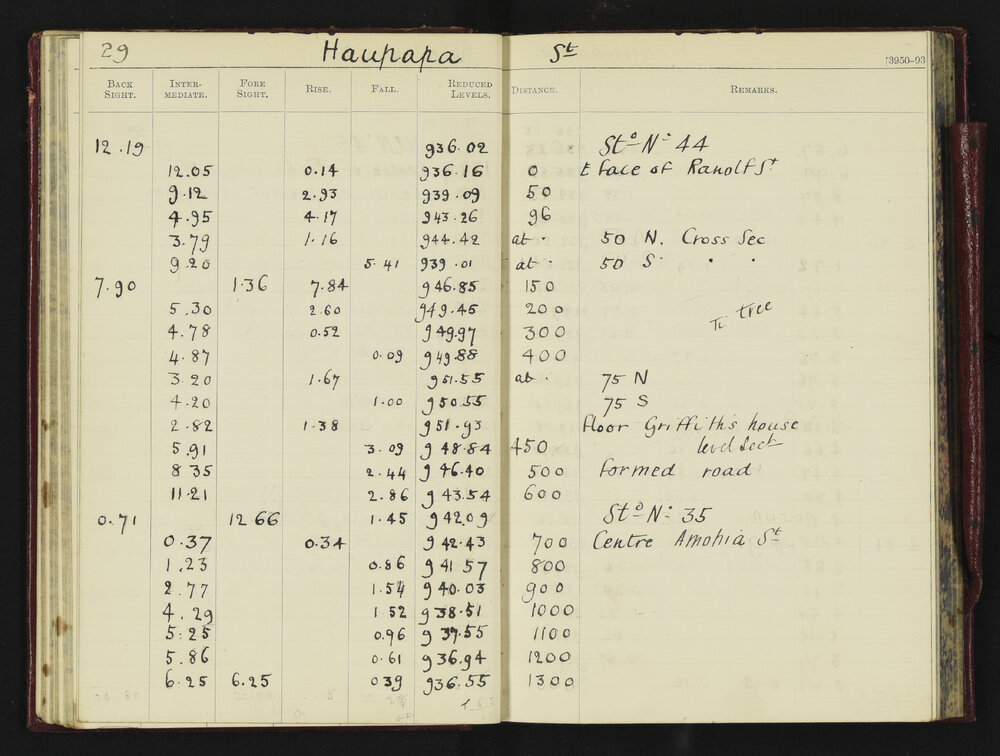 29 Haupapa St
[3950–93
BACK SIGHT. INTER-MEDIATE. FORE SIGHT. RISE. FALL. REDUCED LEVELS. DISTANCE. REMARKS.
12.19 936.02 Stn No 44
12.05 0.14 936.16 0 E Face of Ranolf St
9.12 2.93 939.09 50
4.95 4.17 943.26 96
3.79 1.16 944.42 at 50 N. Cross Sec
9.20 5.41 939.01 at 50 S. " "
7.90 1.36 7.84 946.85 150
5.30 2.60 949.45 200 Ti tree
4.78 0.52 949.97 300
4.87 0.09 949.88 400
3.20 1.67 951.55 at 75 N
4.20 1.00 950.55 75 S
2.82 1.38 951.93 floor Griffiths house
5.91 3.09 948.84 450 level Sect
8.35 2.44 946.40 500 formed road
11.21 2.86 943.54 600
0.71 12.66 1.45 942.09 Stn No 35
0.37 0.34 942.43 700 Centre Amohia St
1.23 0.86 941.57 800
2.77 1.54 940.03 900
4.29 1.52 938.51 1000
5.25 0.96 937.55 1100
5.86 0.61 936.94 1200
6.25 6.25 0.39 936.55 1300